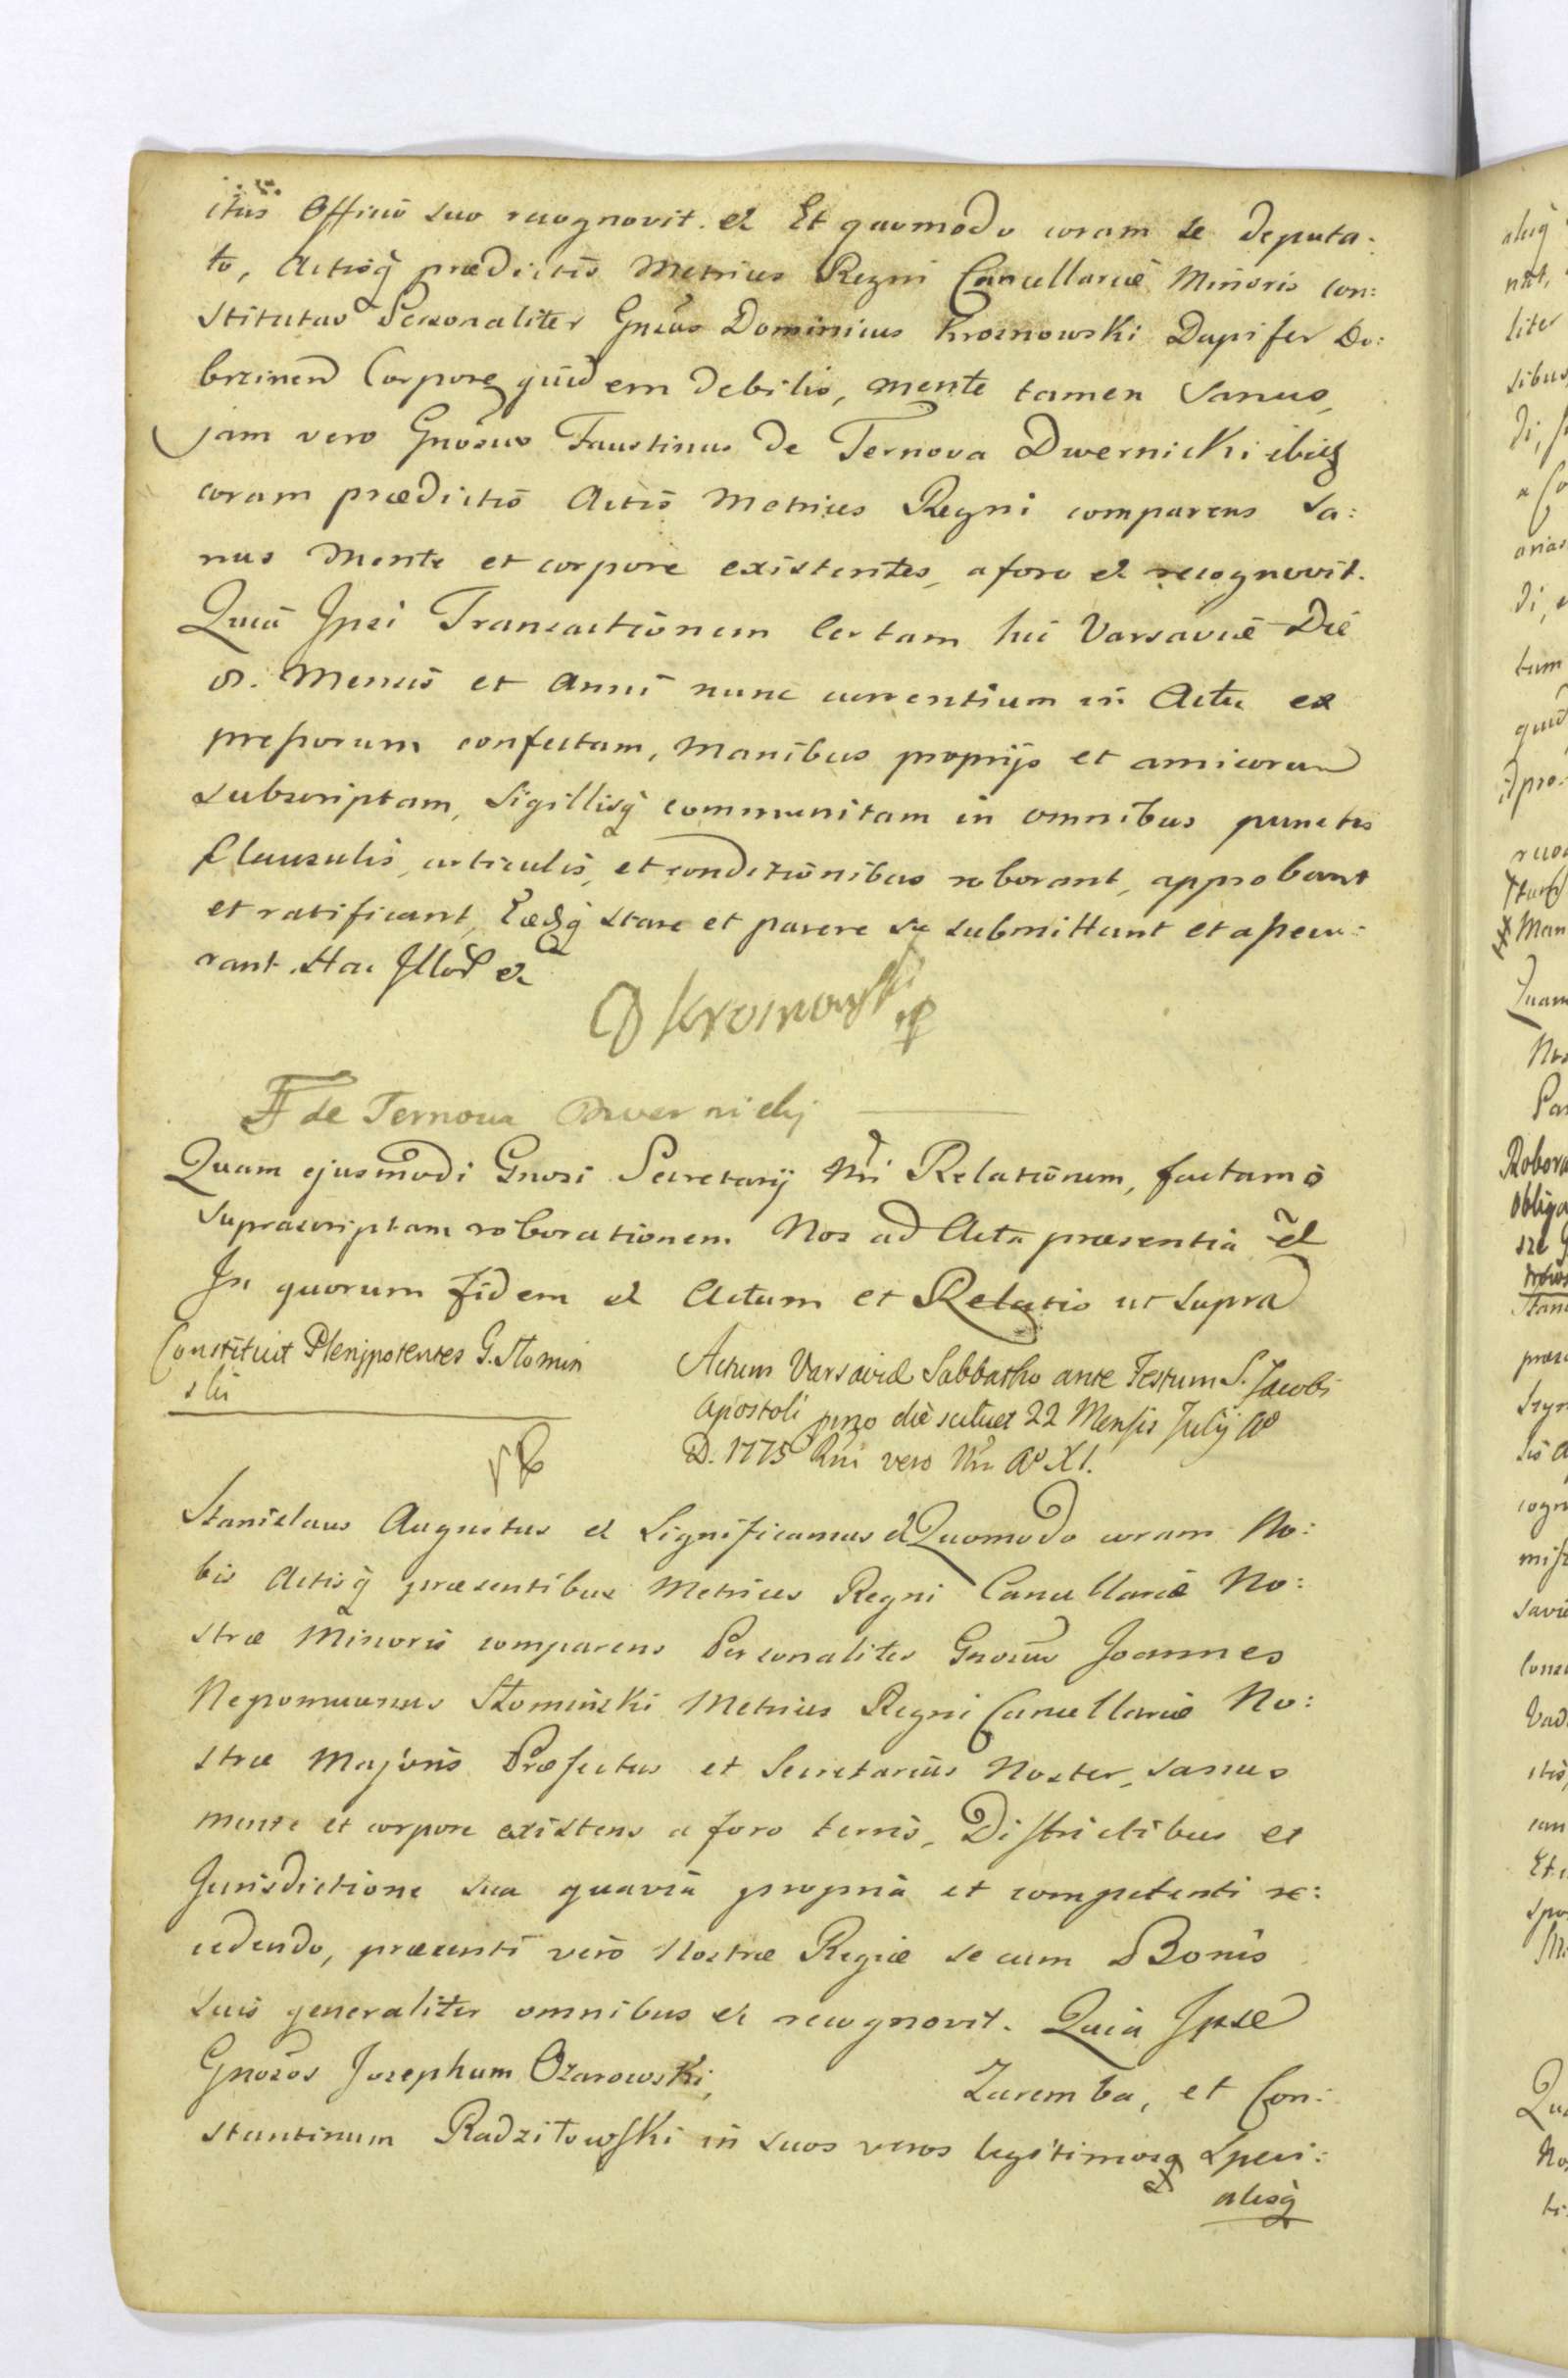 itus Officio suo recognovit. et Et quomodo coram se deputa:
to, Actisq́ prædictis Metrices Regni Cancellariæ Minoris con:
stitutus Personaliter Gnsus Dominicus Krosnowski Dapifer Do:
brzinen Corpore quidem debilis, mente tamen sanus,
jam vero Gnosus Faustinus de Ternova Dwernicki ibiq
coram prædictis Actis Metrices Regni comparens sa:
nus mente et corpore existentes, a foro et recognovit.
Quia Ipsi Transactionem certam hic Varsaviæ Die
Mensis et Anni nunc currentium in Actu ex
pressorum confectam, manibus proprijs et amicorum
subscriptam, Sigillisq́ communitam in omnibus punctis
clausulis, articulis, et conditionibus roborant, approbant
et ratificant, Eædq́ stare et parere se submittunt et assecu:
rant. Hac Illor et
D Krosnowski
F de Ternova Dwernickj
Quam ejusmodi Gnosi Secretarij Nri Relationem, factamq́
Suprascriptam roborationem Nos ad Acta præsentia et
In quorum fidem et Actum et Relatio ut supra
Constituit Plenipotentes G. Słomin
ski
Actum Varsaviæ Sabbatho ante Festum S. Jacobi
Apostoli pmo die scilicet 22 Mensis Julij Ao
D. 1775 Rni vero Nri Ao XI.
Stanislaus Augustus et Significamus et Quomodo coram No:
bis Actisq́ præsentibus Metrices Regni Cancellariæ No:
stræ Minoris comparens Personaliter Gnosus Joannes
Nepomucenus Słomiński Metrices Regni Cancellariæ No:
stræ Majoris Præfectus et Secretarius Noster, sanus
mente et corpore existens a foro terris, Districtibus et
Jurisdictione sua quavis propria et competenti re:
cedendo, præsenti vero Nostræ Regiæ se cum Bonis
suis generaliter omnibus et recognovit. Quia Ipse
Gnosos Josephum Ożarowski, Zaremba, et Con:
stantinum Radziłowski in suos veros legitimosq Speci:
alesq́